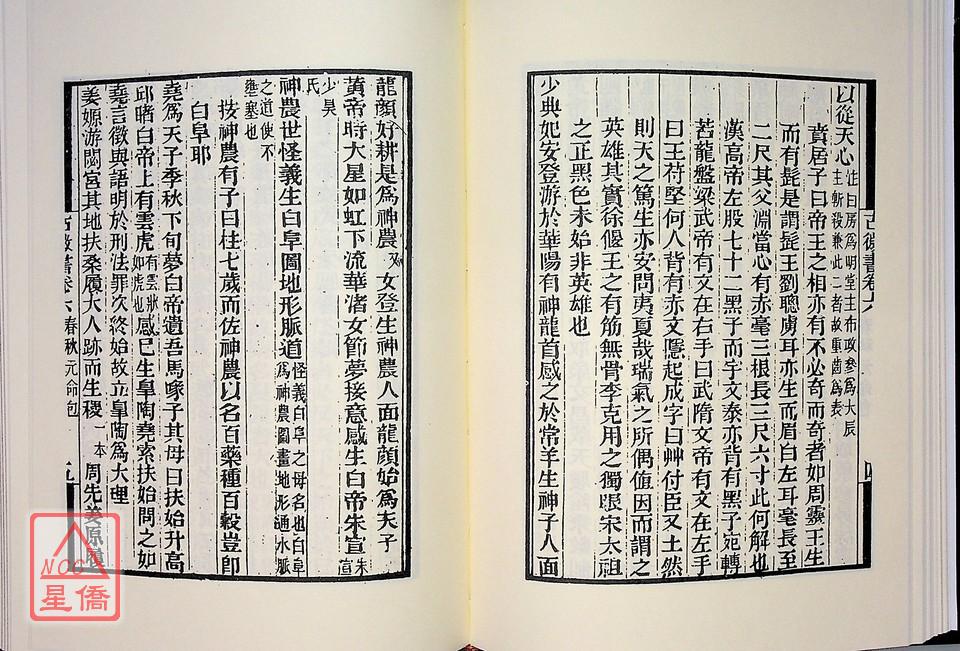 以從天心注曰房為明堂主布政參為大辰
主斬殺兼此二者故重齒為表
賁居子曰帝王之相亦有不必奇而奇者如周靈王生
而有髭是謂髭王劉聰虜耳亦生而眉白左耳毫長至
二尺其父淵當心有赤毫三根長三尺六寸此何解也
漢高帝左股七十二黑子而宇文泰亦背有黑子宛轉
若龍盤梁武帝有文在右手曰武隋文帝有文在左手
曰王苻堅何人背有赤文隱起成字曰艸付臣又土然
則天之篤生亦安問夷夏哉瑞氣之所偶值因而謂之
英雄其實徐偃王之有筋無骨李克用之獨眼宋太祖
之正黑色未始非英雄也
少典妃安登游於華陽有神龍首感之於常羊生神子人面
古微書卷六
四
龍顏好耕是為神農又女登生神農人面龍顏始為天子
黃帝時大星如虹下流華渚女節夢接意感生白帝朱宣朱宣
少昊
氏
神農世怪義生白阜圖地形脈道怪義白阜之母名也白阜
為神農圖畫地形通水脈
之道使不
壅塞也
按神農有子曰柱七歲而佐神農以名百藥種百穀豈即
白阜耶
堯為天子季秋下旬夢白帝遺吾馬喙子其母曰扶始升高
邱睹白帝上有雲虎有雲狀如虎也感已生皐陶堯索扶始問之如
堯言徵與語明於刑法罪次終始故立皐陶為大理
姜嫄游閟宮其地扶桑履大人跡而生稷一本周先姜原履
古微書卷六春秋元命包
九
NCC
星僑